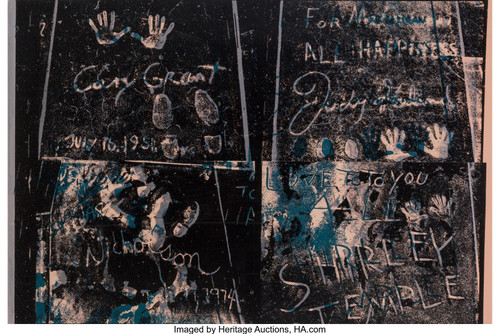 Cary Grant
JULY 16, 1951
FOR
ALL HAPPINESS
Judy
Nicholson
1974
LOVE TO YOU
ALL
SHIRLEY
TEMPLE
Imaged by Heritage Auctions, HA.com